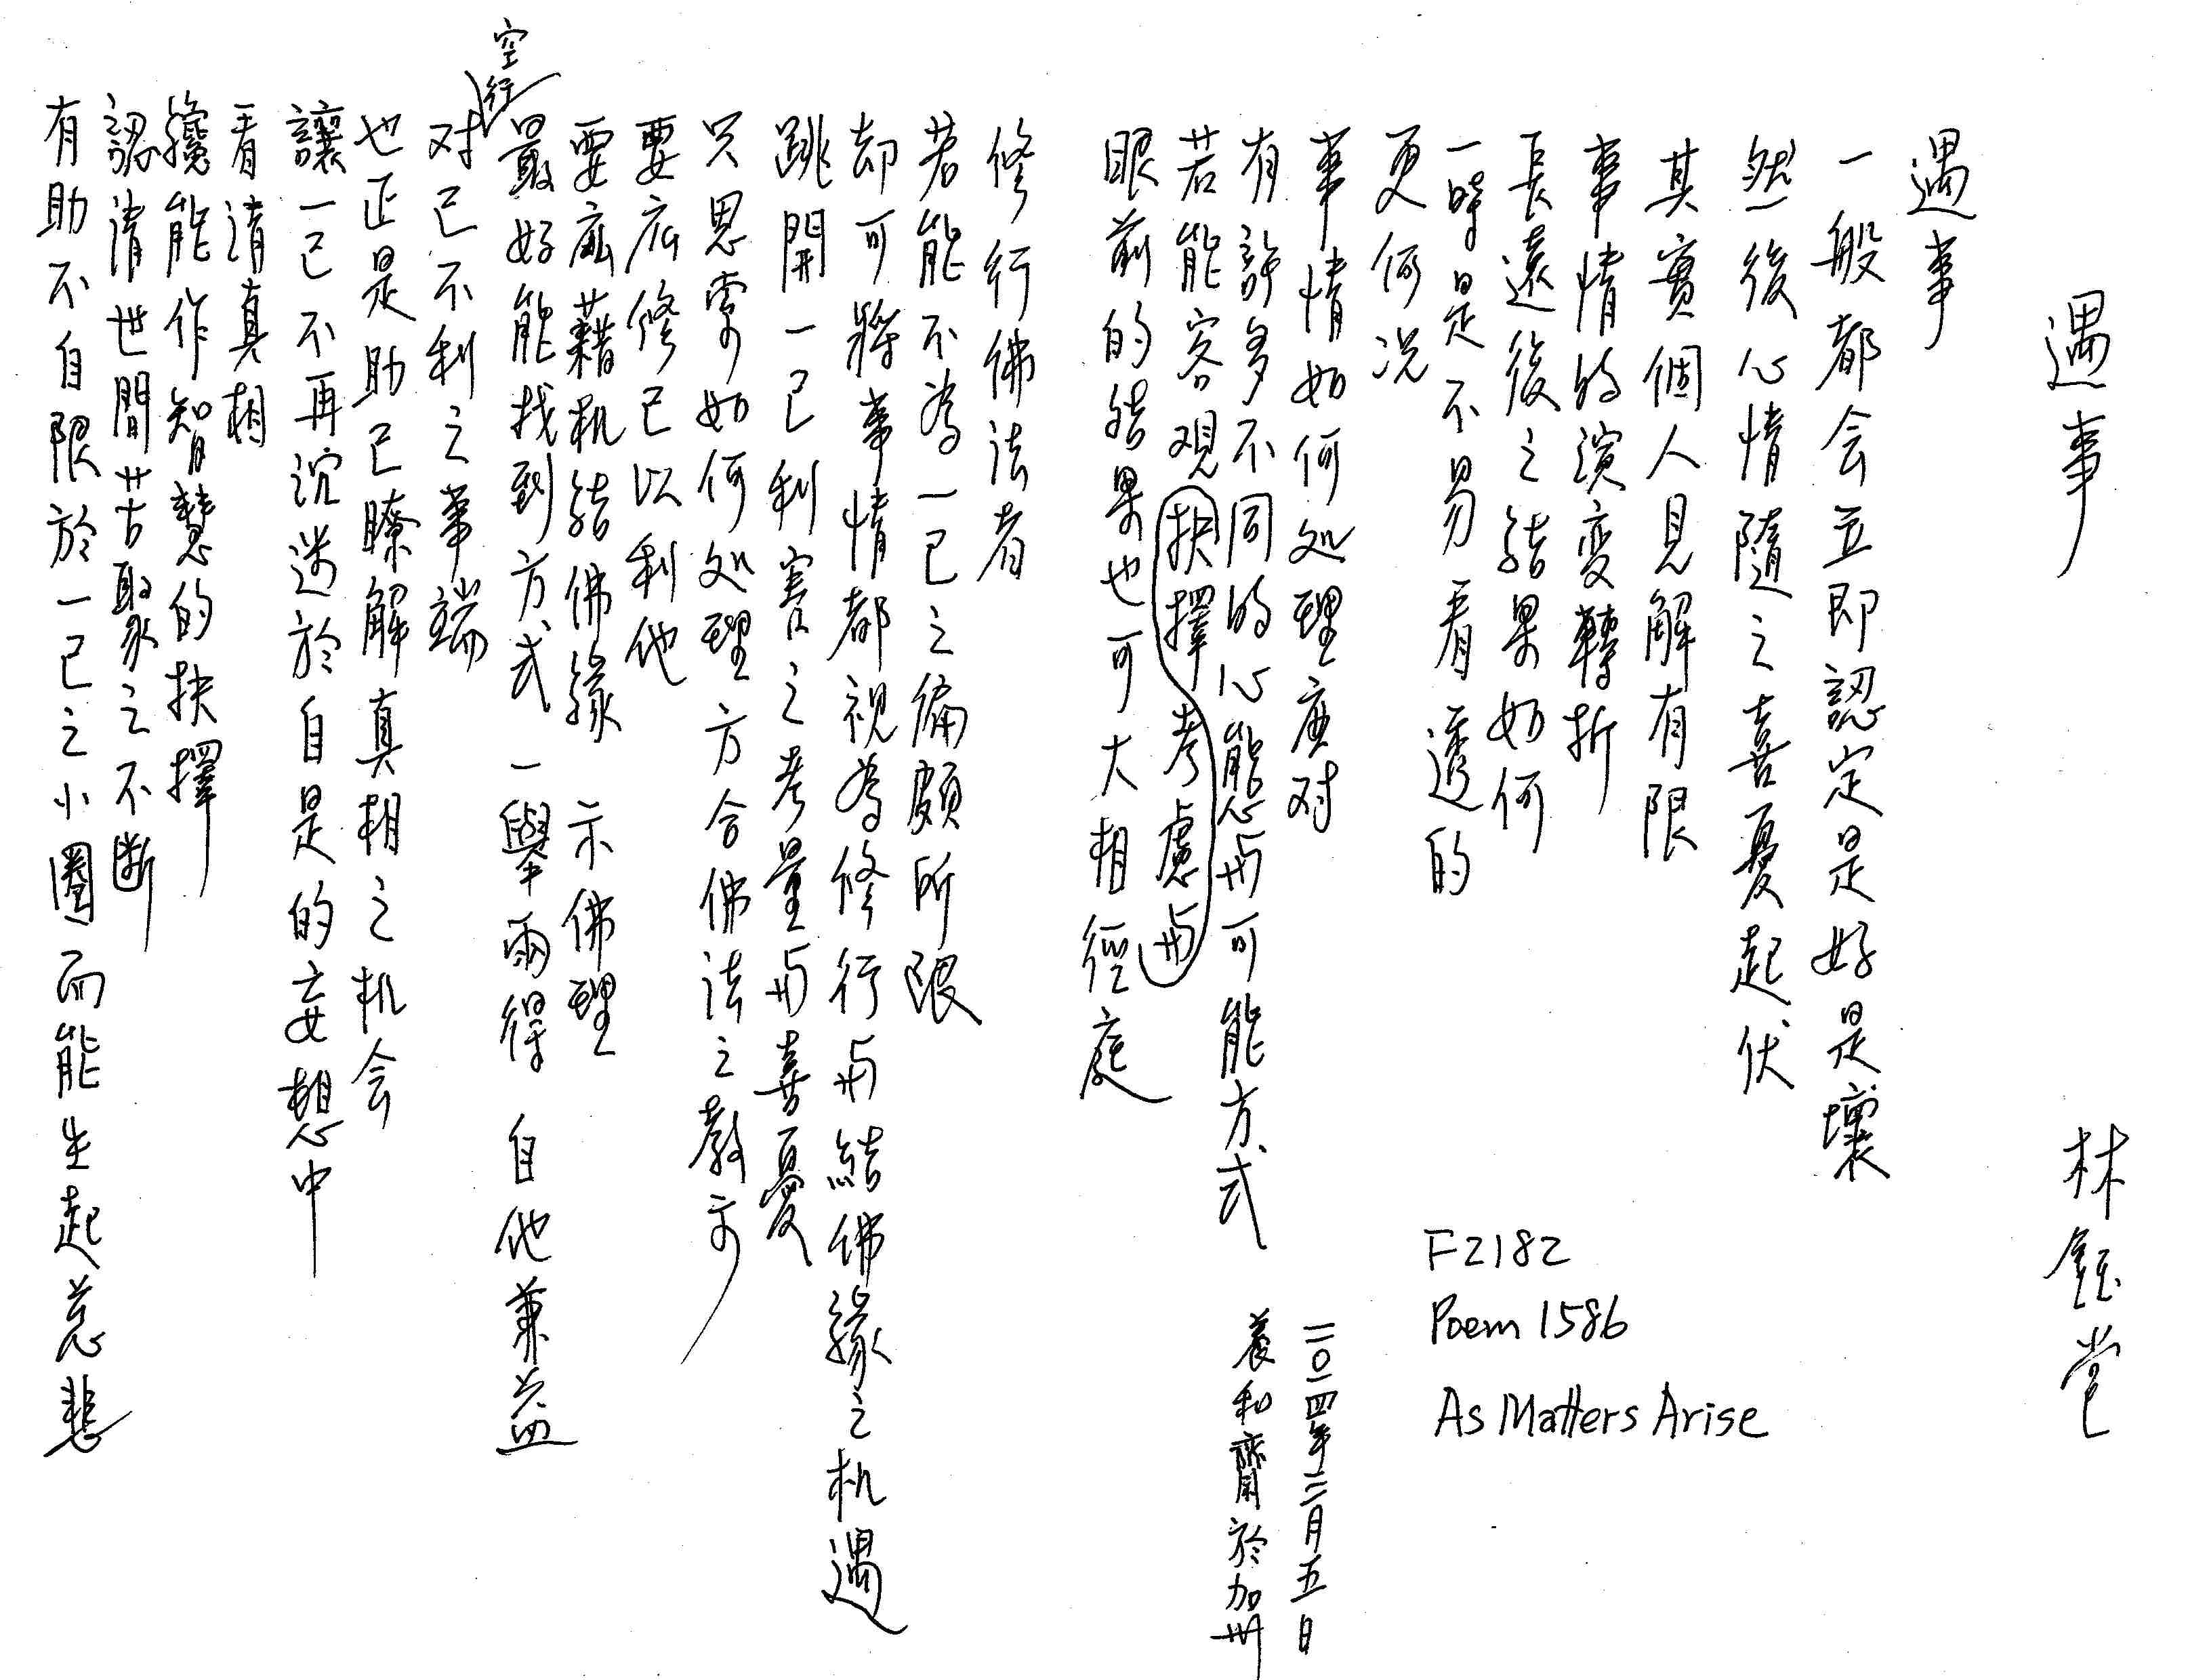 遇事　林鈺堂
遇事
一般都会立即認定是好是壞
然後心情隨之喜憂起伏
其實個人見解有限
事情的演变轉折
長遠後之結果如何
一時是不易看透的
更何况
事情如何处理应对
有許多不同的心態与可能方式
若能客观抉擇考慮与
眼前的結果也可大相徑庭
修行佛法者
若能不為一己之偏頗所限
却可將事情都視為修行与結佛緣之机遇
跳開一己利害之考量与喜憂
只思索如何处理方合佛法之教示
要应修己以利他
要应藉机結佛緣　示佛理
最好能找到方式　一舉兩得　自他兼益
空行
对己不利之事端
也正是助己瞭解真相之机会
讓一己不再沉迷於自是的妄想中
看清真相
纔能作智慧的抉擇
認清世間苦聚之不断
有助不自限於一己之小圈而能生起慈悲
二〇一四年三月五日
養和齋於加州
F2182
Poem 1586
As Matters Arise